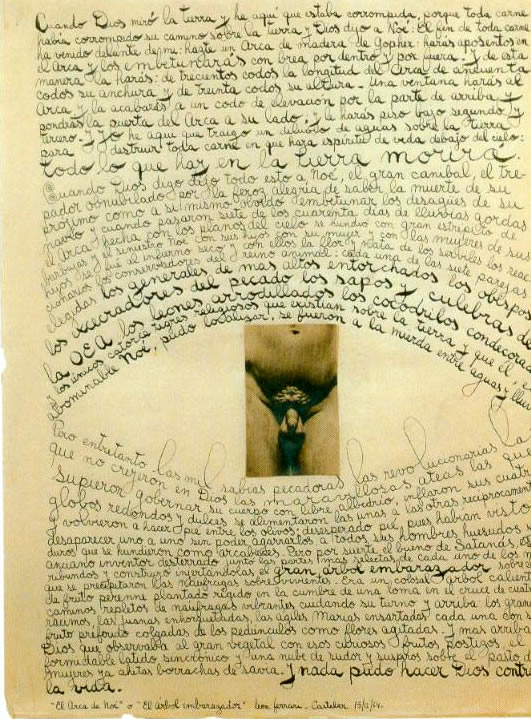 Cuando Dios miró la tierra y he aquí que estaba corrompida, porque toda carne
había corrompido su camino sobre la tierra y Dios dyo a Noé: El fin de toda carne
ha venido delante de mi: hazte un Arca de madera de Gopher: harás aposentos en
el arca y los embetunarás con brea por dentro y por fuera. Y de esta
manera la harás: de trecientos codos la longitud del Arca, de cincuenta
codos su anchura y de treinta codos su altura. Una ventana harás al
Arca y la acabarás a un codo de elevación por la parte de arriba y
pondrás la puerta del Arca a su lado, y le harás piso bajo segundo y
tercero. Y Yo he aquí que traigo un diluvio de aguas sobre la tierra
para destruir toda carne en que haya espíritu de vida debajo del cielo:
todo lo que hay en la tierra morirá.
Cuando Dios dijo esto a Noé, el gran caníbal, el tre-
pador obnubilado por la feroz alegría de saber la muerte de su
prójimo como a si mismo olvidó embetunar los desagües de su
navío y cuando pasaron siete de los cuarenta días de lluvias gordas
el Arca hecha con los planos del cielo se hundió con gran estrépito
burbujas y el siniestro Noé con sus hijos con su mujer y con las mujeres de sus
hijos se fue al infierno seco y con ellos la flor y nata de los serviles los reac-
cionarios los conservadores del reino animal: cada una de las siete parejas
elegidas los generales de mas altos entorchados los obispos
los lucradores del pecado los sapos y culebras de
la OEA los leones arrodillados los cocodrilos condecorados
y los únicos catorce tigres religiosos que existían sobre la tierra y que el
abominable Noé, pudo localizar, se fueron a la murda entre aguas y lluvias
Pero entretanto las mil sabias pecadoras las revolucionarias las
que no creyeron en Dios las maravillosas ateas las que
supieron gobernar su cuerpo con libre albedrío, inflaron sus cuatro
globos redondos y dulces se alimentaron las unas a las otras recíprocamente
y volvieron a hacer pie entre los olivos: desesperado pie, pues habían visto
desaparecer uno a uno sin poder agarrarlos a todos sus hombres huesudos
duros que se hundieron como arcabuces. Pero por suerte el bueno de Satanás, es
anciano inventor desterrado juntó las partes más selectas de cada uno de los mo
ribundos y construyó injertándolas el gran árbol embarazador sobre el
que se precipitaron las náufragas sobrevivientes. Era un colosal árbol caliente
de fruto perenne plantado rígido en la cumbre de una loma en el cruce de cuatro
caminos repletos de naufragas vibrantes cuidando su turno y arriba los gran
racimos, las Juanas enhorquetadas, las ágiles Marías ensartadas cada una con su
fruto preferido colgadas de los pedúnculos como flores agitadas. Y mas arriba
Dios que observaba al gran vegetal con esos curiosos frutos postizos, el
formidable latido sincrónico y una nube de sudor y suspiros sobre el pasto de
mujeres ya ahitas borrachas de savia. Y nada pudo hacer Dios contra
la vida.
"El Arca de Noé" o "El Arbol embarazador" leon ferrari. Castelar 15/2/64.